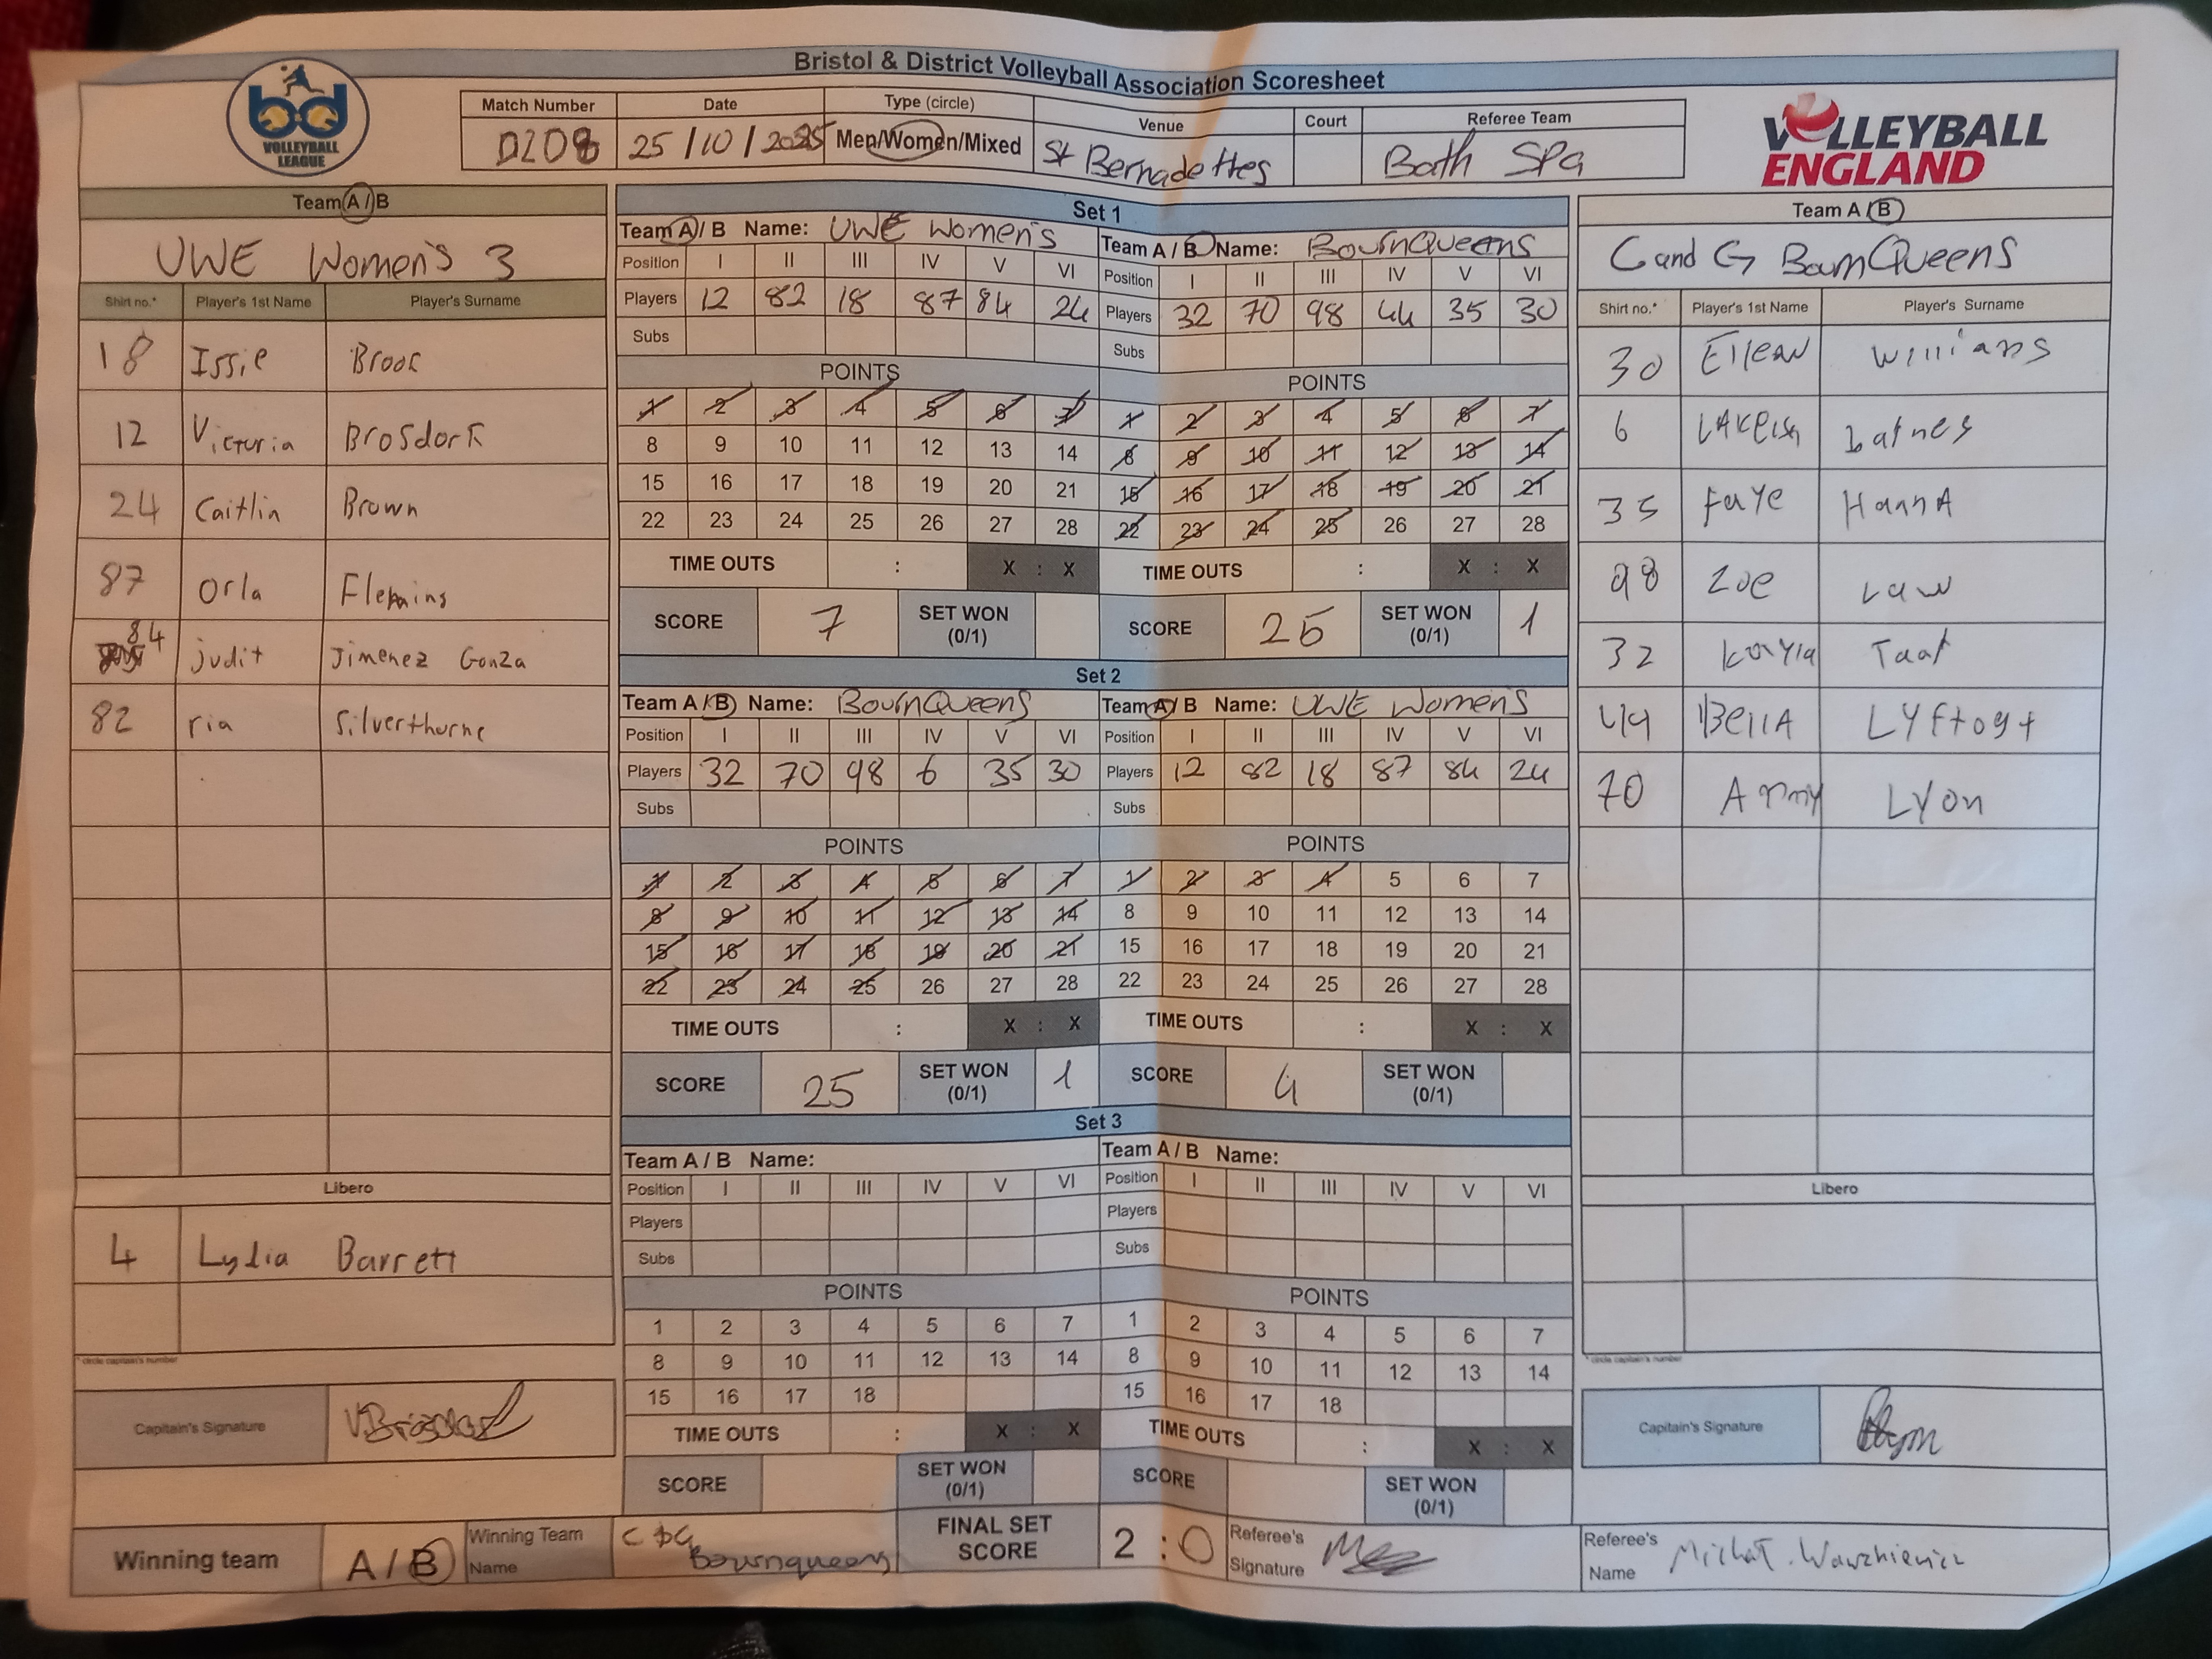 Bristol & District Volleyball Association Scoresheet
bd
VOLLEYBALL
LEAGUE
Match Number Date Type (circle) Venue Court Referee Team
D2D8 25/10/2025 Men/Women/Mixed St Bernadettes Bath Spa
VOLLEYBALL
ENGLAND
Team A/B
UWE Women's 3
Shirt no.* Player's 1st Name Player's Surname
18 Issie Brook
12 Victoria Brosdork
24 Caitlin Brown
87 Orla Fleming
84 judit Jimenez Gonza
82 ria Silverthorne
Libero
4 Lydia Barrett
* circle capitain's number
Capitain's Signature
Set 1
Team A/B Name: UWE Women's
Position I II III IV V VI
Players 12 82 18 87 84 24
Subs
POINTS
1 2 3 4 5 6 7
8 9 10 11 12 13 14
15 16 17 18 19 20 21
22 23 24 25 26 27 28
TIME OUTS : X : X
SCORE 7 SET WON
(0/1)
Team A/B Name: BournQueens
Position I II III IV V VI
Players 32 70 98 44 35 30
Subs
POINTS
1 2 3 4 5 6 7
8 9 10 11 12 13 14
15 16 17 18 19 20 21
22 23 24 25 26 27 28
TIME OUTS : X : X
SCORE 25 SET WON 1
(0/1)
Set 2
Team A/B Name: BournQueens
Position I II III IV V VI
Players 32 70 98 6 35 30
Subs
POINTS
1 2 3 4 5 6 7
8 9 10 11 12 13 14
15 16 17 18 19 20 21
22 23 24 25 26 27 28
TIME OUTS : X : X
SCORE 25 SET WON 1
(0/1)
Team A/B Name: UWE Women's
Position I II III IV V VI
Players 12 82 18 87 84 24
Subs
POINTS
1 2 3 4 5 6 7
8 9 10 11 12 13 14
15 16 17 18 19 20 21
22 23 24 25 26 27 28
TIME OUTS : X : X
SCORE 4 SET WON
(0/1)
Set 3
Team A / B Name:
Position I II III IV V VI
Players
Subs
POINTS
1 2 3 4 5 6 7
8 9 10 11 12 13 14
15 16 17 18
TIME OUTS : X : X
SCORE SET WON
(0/1)
Team A / B Name:
Position I II III IV V VI
Players
Subs
POINTS
1 2 3 4 5 6 7
8 9 10 11 12 13 14
15 16 17 18
TIME OUTS : X : X
SCORE SET WON
(0/1)
Team A/B
C and G BournQueens
Shirt no.* Player's 1st Name Player's Surname
30 Eilean Williams
6 Lakeish barnes
35 Faye HannA
98 Zoe Law
32 Kayla Taaf
44 BellA LYftogt
70 Amy Lyon
Libero
* circle capitain's number
Capitain's Signature
Winning team A / B Winning Team
Name C & G
Bournqueens
FINAL SET
SCORE 2 : 0
Referee's
Signature
Referee's
Name Michał